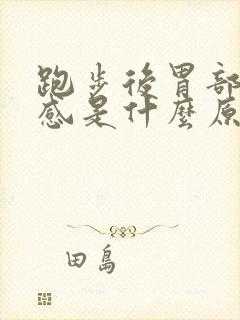 跑步後胃部
感是什麼原
田島